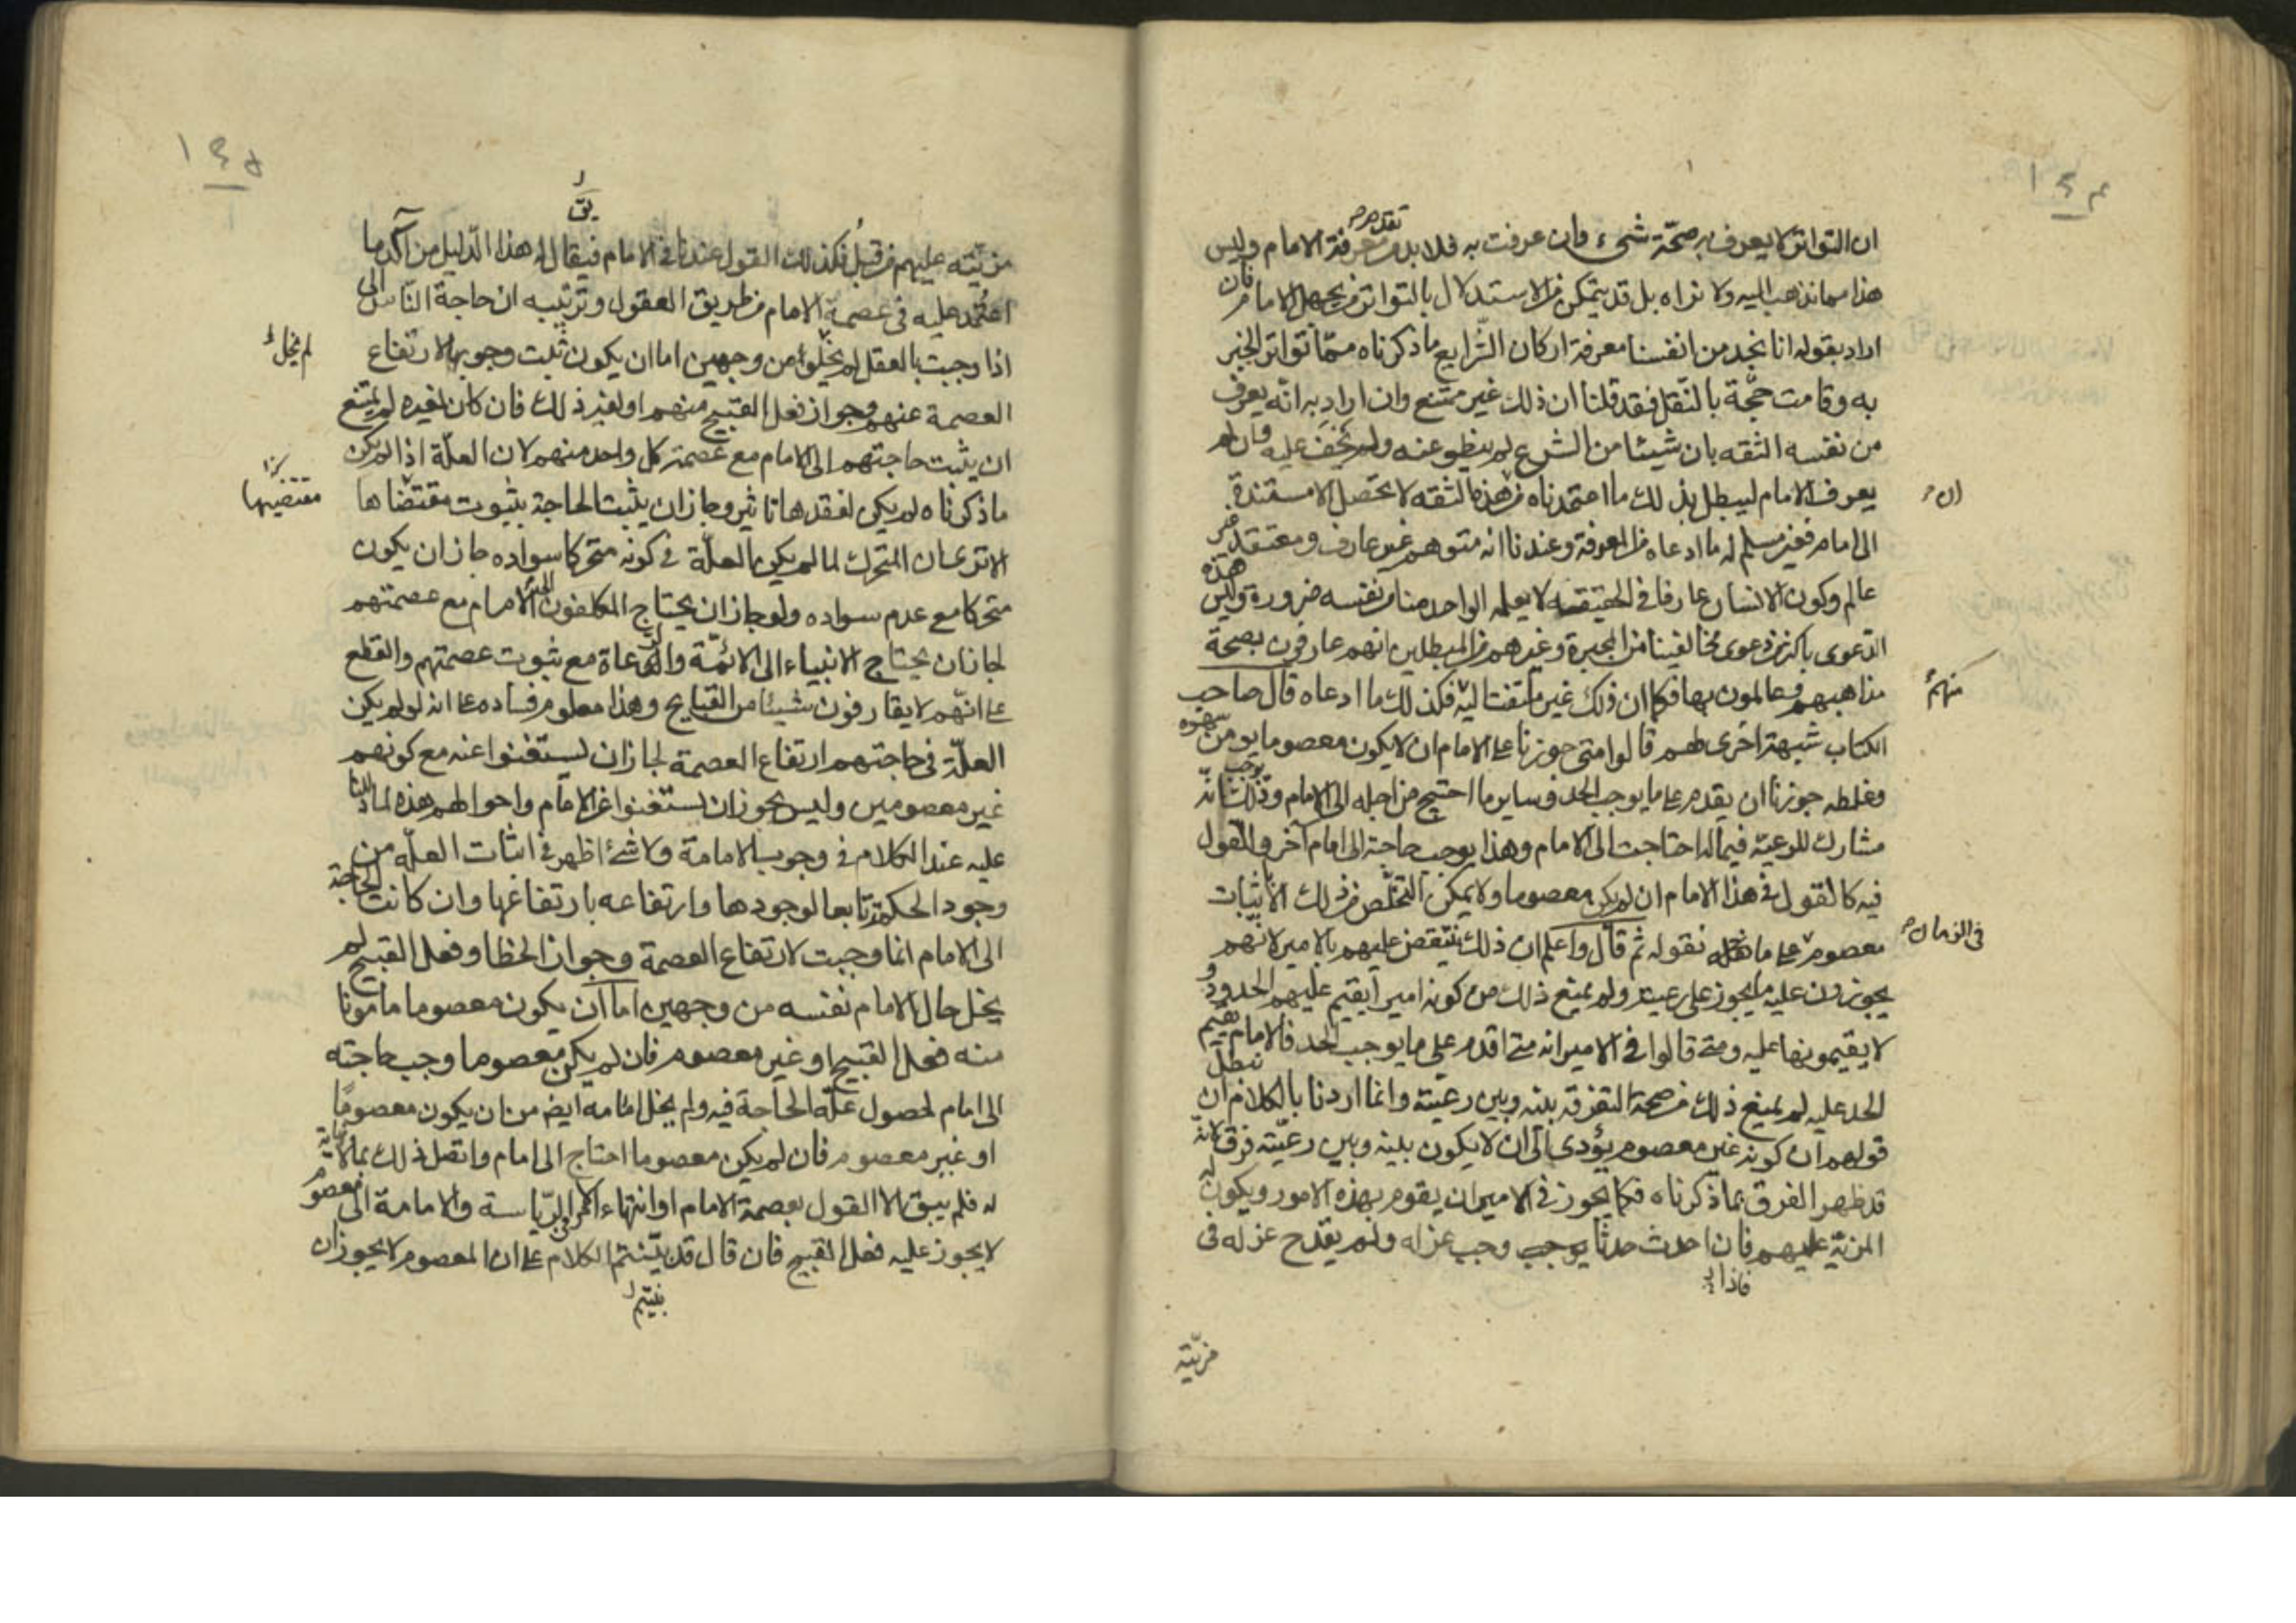 ١٤٤
ان التواتر لا يعرف به صحّة شیء وان عرفت به فلا بد من تقدم معرفة الامام وليس
هذا مما نذهب اليه ولا نراه بل قد يتمكن من الاستدلال بالتواتر من يجهل الامام فان
اراد بقوله انا نجد من انفسنا معرفة اركان الشرايع ما ذكرناه ممّا تواتر الخبر
به وقامت حجّة بالنّقل فقد قلنا ان ذلك غير ممتنع وان اراد به انّه يعرف
من نفسه الثقه بان شيئا من الشرع لم ينطو عنه ولم يخف عليه وان لم
يعرف الامام ليبطل بذلك ما اعتمدناه من هذه الثقه لا تحصل الا مستندة
ان
الى امام فغير مسلم له ما ادعاه من المعرفة وعندنا انه متوهم غير عارف ومعتقد غير
عالم وكون الانسان عارفا فى الحقيقه لا يعلمه الواحد منا من نفسه ضرورة وليس هذه
الدعوى باكثر من دعوى مخالفينا من المجبرة وغيرهم من المبطلين انهم عارفون بصحة
مذاهبهم وعالمون بها فكما ان ذلك غير ملتفت اليه فكذلك ما ادعاه قال صاحب
منهم
الكتاب شبهة اخرى لهم قالوا متى جوزنا على الامام ان لا يكون معصوما يومن سهوه
وغلطه جوزنا ان يقدم على ما يوجب الحد وساير ما احتيج من اجله الى الامام وذلك يوجب انّه
مشارك للرعيّة فيما له احتاجت الى الامام وهذا يوجب حاجته الى امام آخر والقول
فيه كالقول فى هذا الامام ان لم يكن معصوما ولا يمكن التخلّص من ذلك الا باثبات
معصوم على ما نقوله ثم قال واعلم ان ذلك ينتقض عليهم بالامير لانهم
فى الزمان
يجوزون عليه ما يجوز على رعيته ولم يمنع ذلك من كونه اميرا يقيم عليهم الحدود و
لا يقيمونها عليه ومتى قالوا فى الامير انه متى اقدم على ما يوجب الحد فالامام يقيم
الحد عليه لم يمنع ذلك من صحة التفرقة بينه وبين رعيّته وانما اردنا بالكلام ان نبطل
قولهم ان كونه غير معصوم يؤدى الى ان لا يكون بينه وبين رعيّته فرق لانّه
قد ظهر الفرق بما ذكرناه فكما يجوز فى الامير ان يقوم بهذه الامور ويكون له
المزيّة عليهم فان احدث حدثا يوجب وجب عزله ولم يقدح عزله فى
فاذا
مزيّته
١٤٥
مزيّته عليهم من قبل فكذلك القول عندنا فى الامام فيقال له هذا الدّليل من آكد ما
اعتمد عليه فى عصمة الامام من طريق العقول وترتيبه ان حاجة النّاس الى
اذا وجبت بالعقل لم يخلو من وجهين اما ان يكون ثبت وجوبها لارتفاع
لم يخل
العصمة عنهم وجواز فعل القبيح منهم او لغير ذلك فان كان لغيره لم يمتنع
ان يثبت حاجتهم الى الامام مع عصمة كل واحد منهم لان العلّة اذا لم يكن
ما ذكرناه لم يكن لفقدها تاثير وجاز ان يثبت الحاجة بثبوت مقتضاها
مقتضيها
الا ترى ان المتحرك لما لم يكن العلّة فى كونه متحركا سواده جاز ان يكون
متحركا مع عدم سواده ولو جاز ان يحتاج المكلفون الى الامام مع عصمتهم
لجاز ان يحتاج الانبياء الى الائمّة والدعاة مع ثبوت عصمتهم والقطع
على انّهم لا يقارفون شيئا من القبايح وهذا معلوم فساده على انه لو لم يكن
العلّة فى حاجتهم ارتفاع العصمة لجاز ان يستغنوا عنه مع كونهم
غير معصومين وليس يجوز ان يستغنوا عن الامام واحوالهم هذه لما دللنا
عليه عند الكلام فى وجوب الامامة ولا شئ اظهر فى اثبات العلّه من
وجود الحكم تابعا لوجودها وارتفاعه بارتفاعها وان كانت الحاجة
الى الامام انما وجبت لارتفاع العصمة وجواز الخطا وفعل القبيح لم
يخل حال الامام نفسه من وجهين اما ان يكون معصوما مامونا
منه فعل القبيح او غير معصوم فان لم يكن معصوما وجب حاجته
الى امام لحصول علّة الحاجة فيه ولم يخل امامه ايض من ان يكون معصومًا
او غير معصوم فان لم يكن معصوما احتاج الى امام واتصل ذلك بما لا نهاية
له فلم يبق الا القول بعصمة الامام او انتهاء الامر فى الرّياسة والامامة الى معصوم
لا يجوز عليه فعل القبيح فان قال قد بيّنتم الكلام على ان المعصوم لا يجوز ان
بنيتم